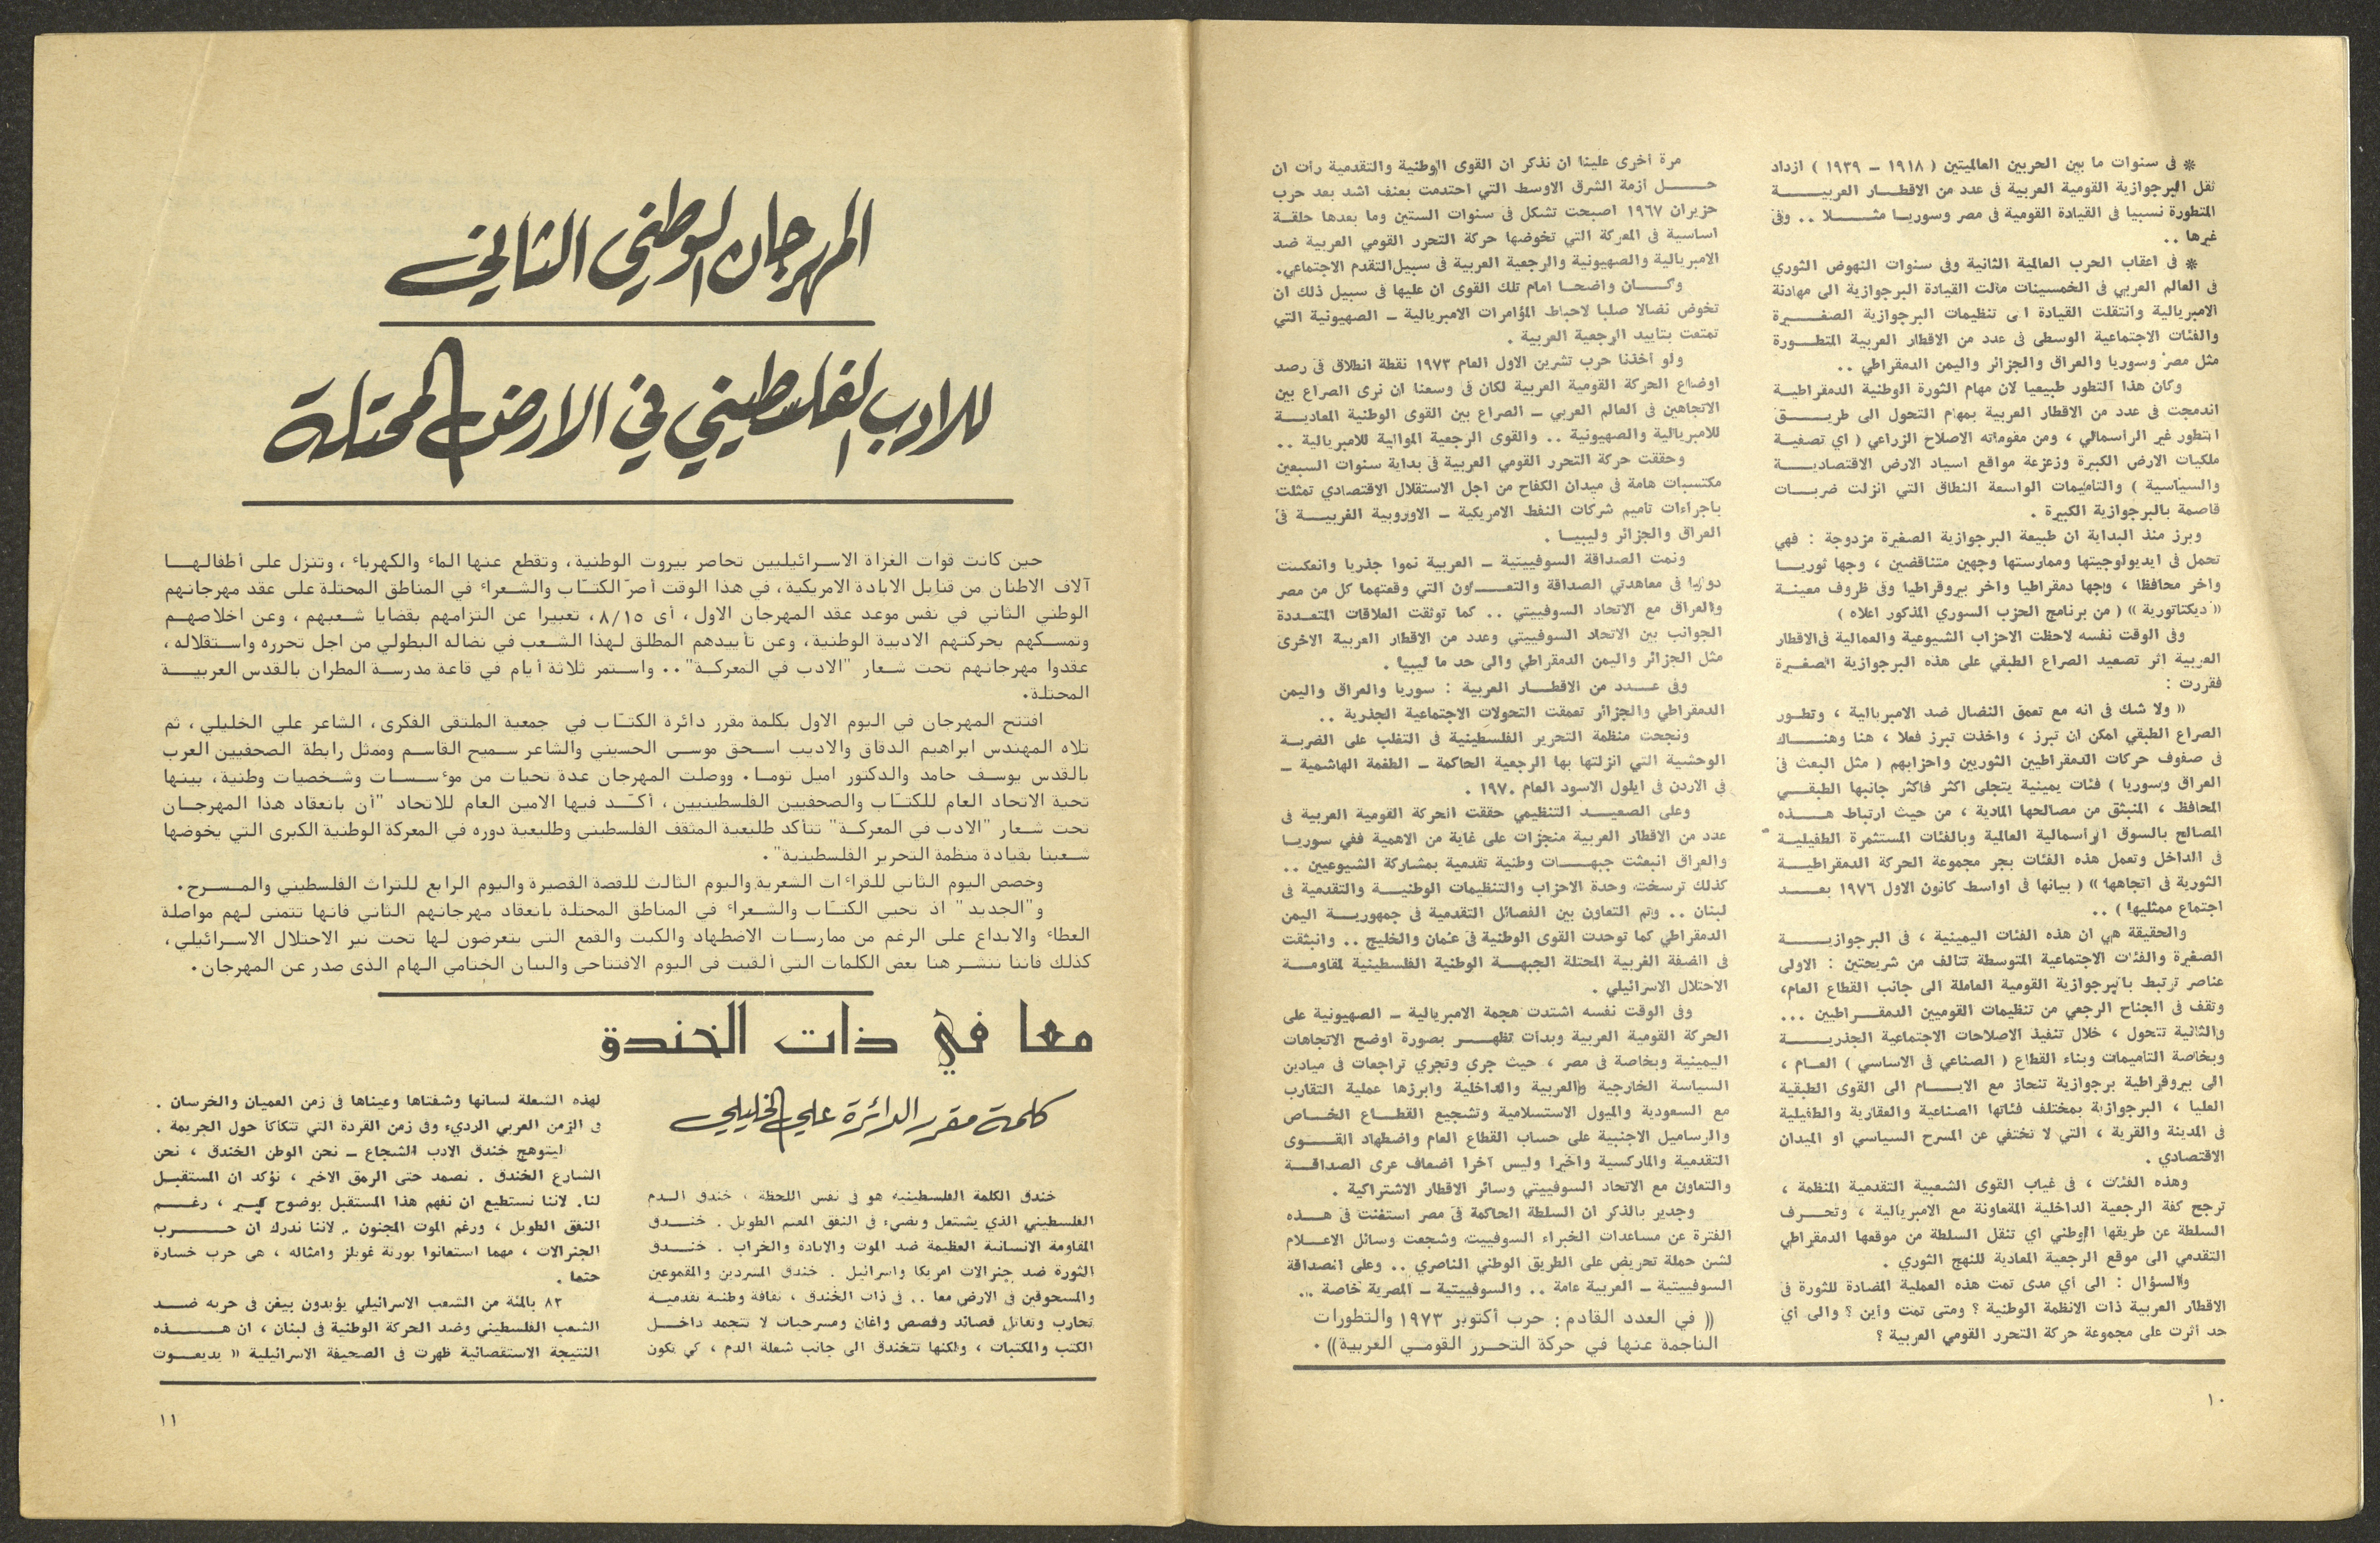 * في سنوات ما بين الحربين العالميتين ( ١٩١٨ ــ ١٩٣٩ ) ازداد
ثقل البرجوازية القومية العربية في عدد من الاقطـــار العربيـــــة
المتطورة نسبيا في القيادة القومية في مصر وسوريــا مثــــلا .. وفي
غيرها ..
* في اعقاب الحرب العالمية الثانية وفي سنوات النهوض الثوري
في العالم العربي في الخمسينات مالت القيادة البرجوازية الى مهادنة
الامبريالية وانتقلت القيادة الى تنظيمات البرجوازية الصغــــيرة
والفئات الاجتماعية الوسطى في عدد من الاقطار العربية المتطـــورة
مثل مصر وسوريا والعراق والجزائر واليمن الدمقراطي ..
وكان هذا التطور طبيعيا لان مهام الثورة الوطنية الدمقراطيــة
اندمجت في عدد من الاقطار العربية بمهام التحول الى طريــــق
التطور غير الرأسمالي ، ومن مقوماته الاصلاح الزراعي ( اي تصفيــة
ملكيات الارض الكبيرة وزعزعة مواقع اسياد الارض الاقتصاديــــة
والسياسية ) والتأميمات الواسعة النطاق التي انزلت ضربـــات
قاصمة بالبرجوازية الكبيرة .
وبرز منذ البداية ان طبيعة البرجوازية الصغيرة مزدوجة : فهي
تحمل في ايديولوجيتها وممارستها وجهين متناقضين ، وجها ثوريـــا
وآخر محافظا ، وجها دمقراطيا وآخر بيروقراطيا وفي ظروف معينــة
(( ديكتاتورية )) ( من برنامج الحزب السوري المذكور اعلاه )
وفي الوقت نفسه لاحظت الاحزاب الشيوعية والعمالية في الاقطار
العربية اثر تصعيد الصراع الطبقي على هذه البرجوازية الصغــيرة
فقررت :
(( ولا شك في انه مع تعمق النضال ضد الامبريالية ، وتطــور
الصراع الطبقي امكن ان تبرز ، واخذت تبرز فعلا ، هنا وهنـــاك
في صفوف حركات الدمقراطيين الثوريين واحزابهم ( مثل البعث في
العراق وسوريا ) فئات يمينية يتجلى اكثر فاكثر جانبها الطبقــي
المحافظ ، المنبثق من مصالحها المادية ، من حيث ارتباط هــــذه
المصالح بالسوق الرأسمالية العالمية وبالفئات المستثمرة الطفيليــة
في الداخل وتعمل هذه الفئات بجر مجموعة الحركة الدمقراطيــــة
الثورية في اتجاهها )) ( بيانها في اواسط كانون الاول ١٩٧٦ بعـــد
اجتماع ممثليها ) ..
والحقيقة هي ان هذه الفئات اليمينية ، في البرجوازيـــــــة
الصغيرة والفئات الاجتماعية المتوسطة تتألف من شريحتين : الاولى
عناصر ترتبط بالبرجوازية القومية العاملة الى جانب القطاع العام،
وتقف في الجناح الرجعي من تنظيمات القوميين الدمقـــراطيين ...
والثانية تتحول ، خلال تنفيذ الاصلاحات الاجتماعية الجذريـــــة
وبخاصة التأميمات وبناء القطاع ( الصناعي في الاساسي ) العــام ،
الى بيروقراطية برجوازية تنحاز مع الايـــــام الى القوى الطبقية
العليا ، البرجوازية بمختلف فئاتها الصناعية والعقارية والطفيلية
في المدينة والقرية ، التي لا تختفي عن المسرح السياسي او الميدان
الاقتصادي .
وهذه الفئات ، في غياب القوى الشعبية التقدمية المنظمة ،
ترجح كفة الرجعية الداخلية المتعاونة مع الامبريالية ، وتحــــرف
السلطة عن طريقها الوطني اي تنقل السلطة من موقعها الدمقراطي
التقدمي الى موقع الرجعية المعادية للنهج الثوري .
والسؤال : الى أي مدى تمت هذه العملية المضادة للثورة في
الاقطار العربية ذات الانظمة الوطنية ؟ ومتى تمت وأين ؟ والى أي
حد أثرت على مجموعة حركة التحرر القومي العربية ؟
مرة أخرى علينا ان نذكر ان القوى الوطنية والتقدمية رأت ان
حـــــل ازمة الشرق الاوسط التي احتدمت بعنف اشد بعد حرب
حزيران ١٩٦٧ اصبحت تشكل في سنوات الستين وما بعدها حلقــة
اساسية في المعركة التي تخوضها حركة التحرر القومي العربية ضد
الامبريالية والصهيونية والرجعية العربية في سبيل التقدم الاجتماعي.
وكــــان واضحــا امام تلك القوى ان عليها في سبيل ذلك ان
تخوض نضالا صلبا لاحباط المؤامرات الامبريالية ــ الصهيونية التي
تمتعت بتأييد الرجعية العربية .
ولو أخذنا حرب تشرين الاول العام ١٩٧٣ نقطة انطلاق في رصد
اوضاع الحركة القومية العربية لكان في وسعنا ان نرى الصراع بين
الاتجاهين في العالم العربي ــ الصراع بين القوى الوطنية المعاديـــة
للامبريالية والصهيونية .. والقوى الرجعية الموالية للامبريالية ..
وحققت حركة التحرر القومي العربية في بداية سنوات السبعين
مكتسبات هامة في ميدان الكفاح من اجل الاستقلال الاقتصادي تمثلت
باجراءات تأميم شركات النفط الامريكية ــ الاوروبية الغربيـــة في
العراق والجزائر وليبيــا .
ونمت الصداقة السوفييتية ــ العربية نموا جذريا وانعكست
دوليا في معاهدتي الصداقة والتعـــاون التي وقعتهما كل من مصر
والعراق مع الاتحاد السوفييتي .. كما توثقت العلاقات المتعــددة
الجوانب بين الاتحاد السوفييتي وعدد من الاقطار العربية الاخرى
مثل الجزائر واليمن الدمقراطي والى حد ما ليبيا .
وفي عــــدد من الاقطـــار العربية : سوريا والعراق واليمن
الدمقراطي والجزائر تعمقت التحولات الاجتماعية الجذرية ..
ونجحت منظمة التحرير الفلسطينية في التغلب على الضربــة
الوحشية التي انزلتها بها الرجعية الحاكمة ــ الطغمة الهاشمية ــ
في الاردن في ايلول الاسود العام ١٩٧٠ .
وعلى الصعيـــد التنظيمي حققت الحركة القومية العربية في
عدد من الاقطار العربية منجزات على غاية من الاهمية ففي سوريــا
والعراق انبعثت جبهـــات وطنية تقدمية بمشاركة الشيوعيين ..
كذلك ترسخت وحدة الاحزاب والتنظيمات الوطنيـــة والتقدمية في
لبنان .. وتم التعاون بين الفصائل التقدمية في جمهوريـــة اليمن
الدمقراطي كما توحدت القوى الوطنية في عُمان والخليج .. وانبثقت
في الضفة الغربية المحتلة الجبهــة الوطنية الفلسطينية لمقاومــة
الاحتلال الاسرائيلي .
وفي الوقت نفسه اشتدت هجمة الامبريالية ــ الصهيونية على
الحركة القومية العربية وبدأت تظهـــر بصورة اوضح الاتجاهات
اليمينية وبخاصة في مصر ، حيث جرى وتجري تراجعات في ميادين
السياسة الخارجية والعربية والداخلية وابرزها عملية التقارب
مع السعودية والميول الاستسلامية وتشجيع القطـــاع الخـــاص
والرساميل الاجنبية على حساب القطاع العام واضطهاد القــــوى
التقدمية والماركسية واخيرا وليس آخرا اضعاف عرى الصداقـــة
والتعاون مع الاتحاد السوفييتي وسائر الاقطار الاشتراكية .
وجدير بالذكر ان السلطة الحاكمة في مصر استغنت في هـــذه
الفترة عن مساعدات الخبراء السوفييت، وشجعت وسائل الاعـــلام
لشن حملة تحريض على الطريق الوطني الناصري .. وعلى الصداقة
السوفييتية ــ العربية عامة .. والسوفييتية ــ المصرية خاصة ..
(( في العدد القادم : حرب أكتوبر ١٩٧٣ والتطورات
الناجمة عنها في حركة التحــرر القومـي العربية)) .
١٠
المهرجان الوطني الثاني
للادب الفلسطيني في الارض المحتلة
حين كانت قوات الغزاة الاسـرائيليين تحاصر بيروت الوطنية، وتقطع عنها الماء والكهرباء ، وتنزل على أطفالهــا
آلاف الاطنان من قنابل الابادة الامريكية، في هذا الوقت أصرّ الكتـّاب والشـعراء في المناطق المحتلة على عقد مهرجانهم
الوطني الثاني في نفس موعد عقد المهرجان الاول ، أى ٨/١٥، تعبيرا عن التزامهم بقضايا شـعبهم ، وعن اخلاصهـم
وتمسـكهم بحركتهم الادبية الوطنية، وعن تأييدهم المطلق لهذا الشـعب في نضاله البطولي من اجل تحرره واسـتقلاله ،
عقدوا مهرجانهم تحت شـعار "الادب في المعركـة".. واسـتمر ثلاثة أيام في قاعة مدرسـة المطران بالقدس العربيــة
المحتلة.
افتتح المهرجان في اليوم الاول بكلمة مقرر دائرة الكتـّاب في جمعية الملتقى الفكرى، الشاعر علي الخليلي ، ثم
تلاه المهندس ابراهيم الدقاق والاديب اسـحق موسـى الحسيني والشاعر سـميح القاسـم وممثل رابطة الصحفيين العرب
بالقدس يوسـف حامد والدكتور اميل تومـا. ووصلت المهرجان عدة تحيات من موٴسـسـات وشـخصيات وطنية، بينها
تحية الاتحاد العام للكتـّاب والصحفيين الفلسطينيين ، أكـّـد فيها الامين العام للاتحاد "أن بانعقاد هذا المهرجـان
تحت شـعار "الادب في المعركـة" تتأكد طليعية المثقف الفلسطيني وطليعية دوره في المعركة الوطنية الكبرى التي يخوضها
شـعبنا بقيادة منظمة التحرير الفلسطينية" .
وخصص اليوم الثاني للقراءات الشعرية واليوم الثالث للقصة القصيرة واليوم الرابع للتراث الفلسطيني والمسـرح.
و"الجديد" اذ تحيي الكتـّاب والشـعراء في المناطق المحتلة بانعقاد مهرجانهم الثاني فانها تتمنى لهم مواصلة
العطاء والابداع على الرغم من ممارسـات الاضطهاد والكبت والقمع التي يتعرضون لها تحت نير الاحتلال الاسـرائيلي ،
كذلك فاننا ننشـر هنا بعض الكلمات التي ألقيت في اليوم الافتتاحي والبيان الختامي الهام الذى صدر عن المهرجان.
معا في ذات الخندق
كلمة مقرر الدائرة علي الخليلي
خندق الكلمة الفلسطينية هو في نفس اللحظة ، خندق الــدم
الفلسطيني الذي يشتعل ويضيء في النفق المعتم الطويل . خنــدق
المقاومة الانسانية العظيمة ضد الموت والابادة والخراب . خنــدق
الثورة ضد جنرالات امريكا واسرائيل . خندق المشردين والمقموعين
والمسحوقين في الارض معا .. في ذات الخندق ، ثقافة وطنية تقدميــة
تحارب وتقاتل قصائد وقصص واغان ومسرحيات لا تتجمد داخــل
الكتب والمكتبات ، ولكنها تتخندق الى جانب شعلة الدم ، كي يكون
لهذه الشعلة لسانها وشفتاها وعيناها في زمن العميان والخرسان .
في الزمن العربي الرديء وفي زمن القردة التي تتكاكأ حول الجريمة .
ليتوهج خندق الادب الشجاع ــ نحن الوطن الخندق ، نحن
الشارع الخندق . نصمد حتى الرمق الاخير ، نؤكد ان المستقبــل
لنا. لاننا نستطيع ان نفهم هذا المستقبل بوضوح كبير ، رغــــم
النفق الطويل ، ورغم الموت المجنون . لاننا ندرك ان حـــــرب
الجنرالات ، مهما استعانوا بورثة غوبلز وامثاله ، هي حرب خسارة
حتما .
٨٣ بالمئة من الشعب الاسرائيلي يؤيدون بيغن في حربه ضــد
الشعب الفلسطيني وضد الحركة الوطنية في لبنان ، ان هـــــذه
النتيجة الاستقصائية ظهرت في الصحيفة الاسرائيلية (( يديعــوت
١١